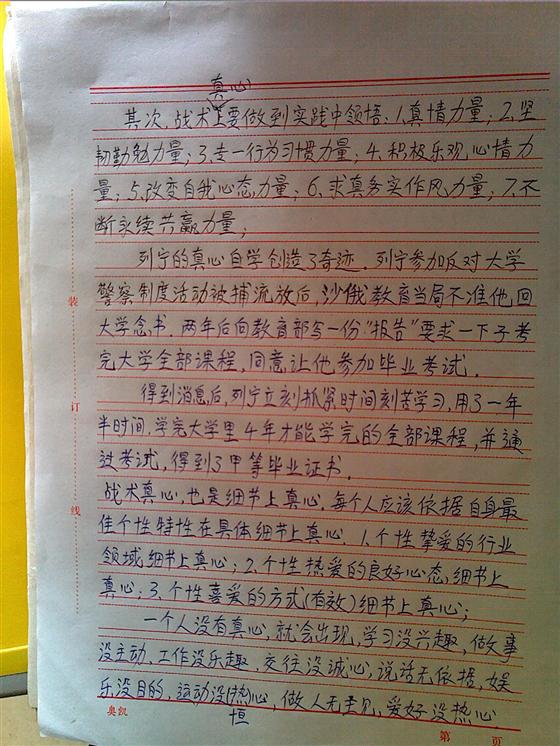 真心
其次,战术上要做到实践中领悟:1.真情力量;2.坚
韧勤勉力量;3.专一行为习惯力量;4.积极乐观心情力
量;5.改变自我心态力量;6.求真务实作风力量;7.不
断永续共赢力量;
列宁的真心自学创造了奇迹.列宁参加反对大学
警察制度活动被捕流放后,沙俄教育当局不准他回
大学念书.两年后向教育部写一份“报告”要求一下子考
完大学全部课程,同意让他参加毕业考试.
得到消息后,列宁立刻抓紧时间刻苦学习,用了一年
半时间.学完大学里4年才能学完的全部课程,并通
过考试,得到了甲等毕业证书.
战术真心,也是细节上真心.每个人应该依据自身最
佳个性特性在具体细节上真心.1.个性挚爱的行业
领域细节上真心;2.个性热爱的良好心态细节上
真心;3.个性喜爱的方式(有效)细节上真心;
一个人没有真心,就会出现,学习没兴趣,做事
没主动、工作没乐趣、交往没诚心,说话无依据,娱
乐没目的,运动没恒心,做人无主见,爱好没热心
装
订
线
奥凯
第 页